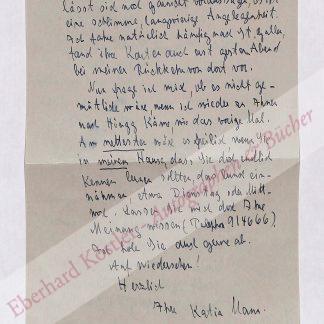 lässt sich noch garnicht voraussagen, es ist
eine schlimme, langwierige Angelegenheit.
Ich fahre natürlich häufig nach St. Gallen,
fand ihre Karten auch erst gestern Abend
bei meiner Rückkehr von dort vor.
Nun frage ich mich, ob es nicht ge-
mütlicher wäre, wenn ich wieder zu Ihnen
nach Höngg käme, wie das vorige Mal.
Am nettesten wäre es freilich wenn Sie
in meinem Hause, das Sie doch endlich
kennen lernen sollten, den Lunch ein-
nähmen, etwa Dienstag oder Mitt-
woch. Lassen Sie mich doch Ihre
Meinung wissen (Telephon 914666).
Ich hole Sie auch gerne ab.
Auf Wiedersehen!
Herzlich
Ihre Katia Mann.
Eberhard Köstler - Autographen & Bücher